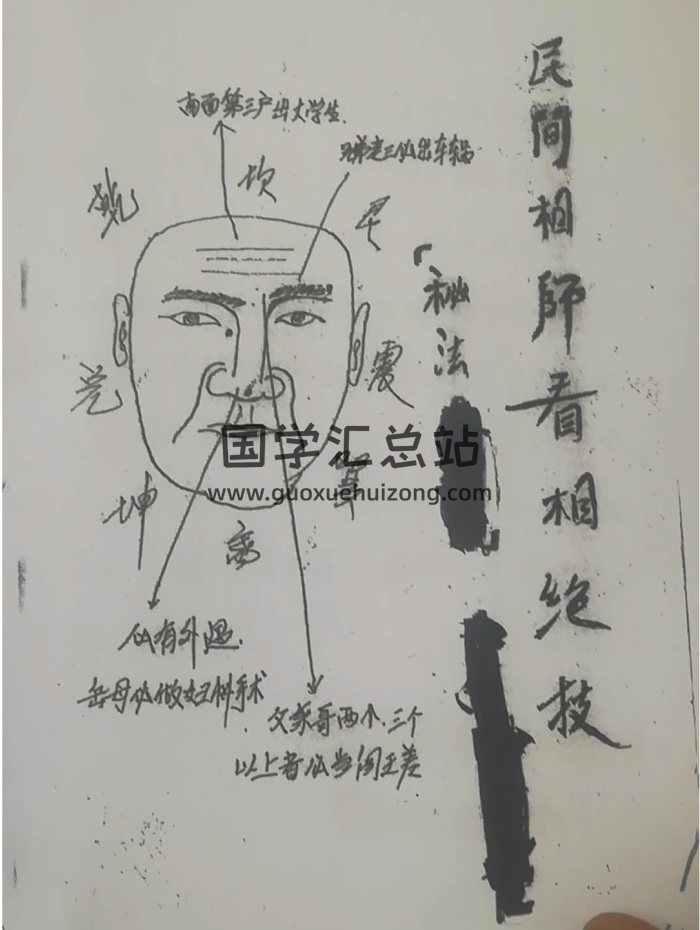 民间相師看相绝技
「秘法
南面第三户出大学生.
兄弟走三从出车祸
坎
乾
艮
兑
震
坤
巽
离
国学汇总站
www.guoxuehuizong.com
必有外遇.
岳母必做妇科手术
父亲哥两个.三个
以上者必当阎王差